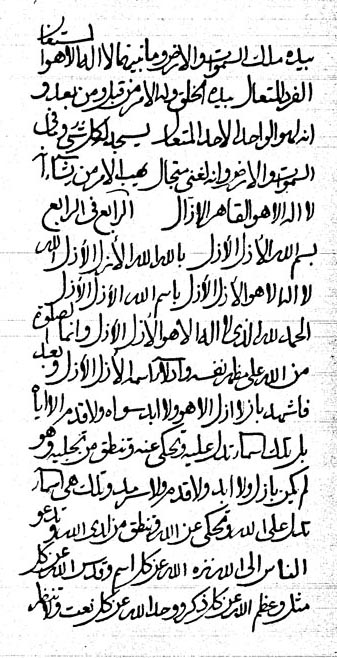 المستعان
بيده ملك السموات والارض وما بينهما لا اله الا هو
الفرد المتعال بيده الخلق وله الامر من قبل ومن بعد و
انه لهو الواحد الاحد المتعال يسجد له كل شيء في
السموات والارض وانه لغني متعال يهب الامر من يشاء
لا اله الا هو القاهر الازال الرابع في الرابع
بسم الله الأزل الأزل بالله الله الأزل الأزل الله
لا اله الا هو الأزل الأزل باسم الله الأزل الأزل
الحمد لله الذي لا اله الا هو الأزل الأزل وانما الصلوة
من الله على مظهر نفسه وادلاء اسمه الأزل الأزل وبعد
فاشهد بان لا ازل الا هو ولا ابد سواه ولا قدم الا اياه
بل تلك اسماء تدل عليه وتحكى عنه وتنطق من تجليه وهو
لم يكن بازل ولا ابد ولا قدم ولا سرمد وتلك هى اسماء
تدل على الله وتحكى عن الله وتنطق من لدى الله وتدعو
الناس الى الله نزه الله عن كل اسم وقدس الله عن كل
مثل وعظم الله عن كل ذكر ووحد الله عن كل نعت ولا تنظر